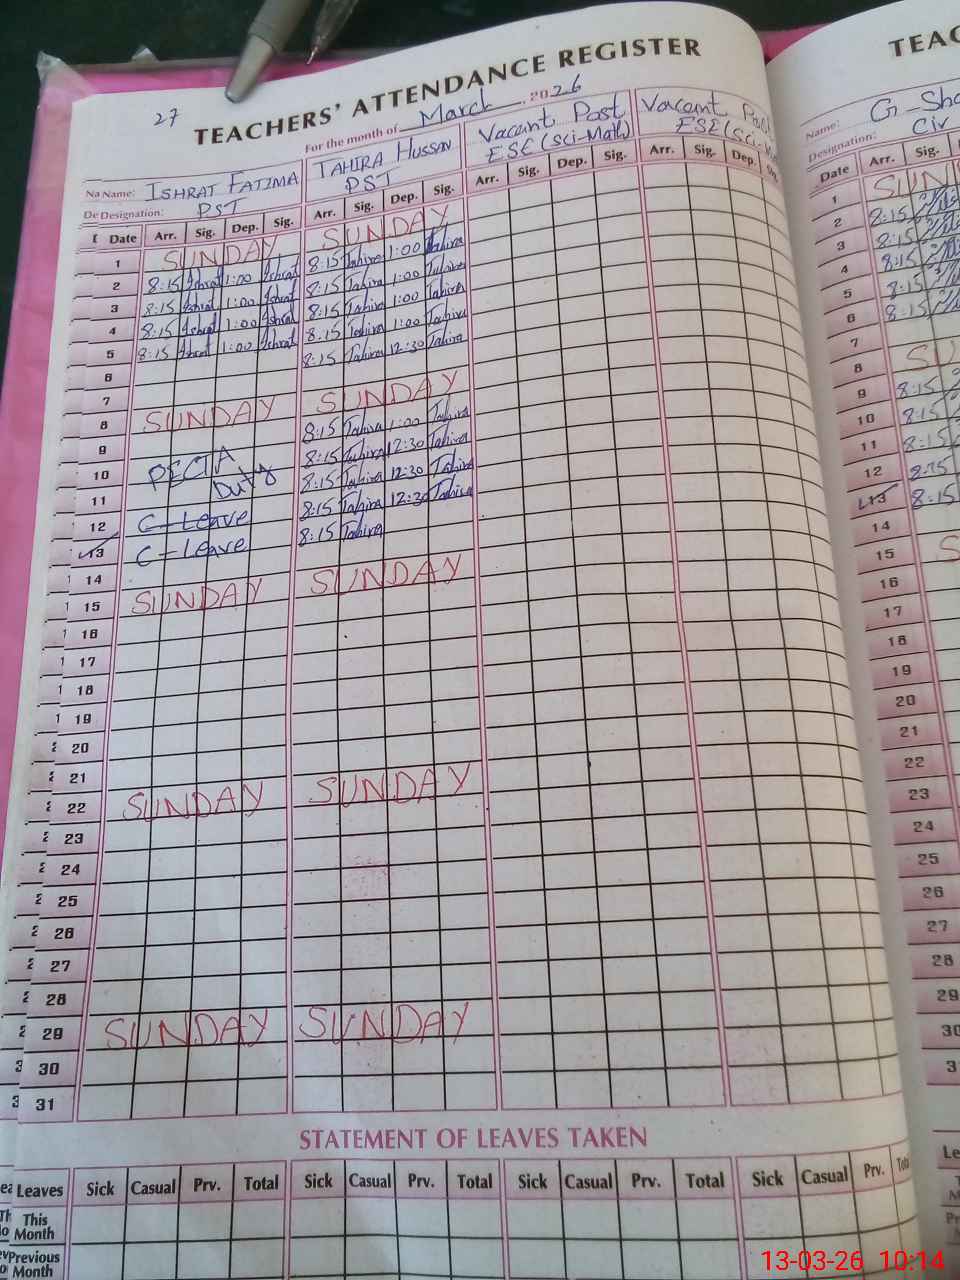 27
TEACHERS' ATTENDANCE REGISTER
For the month of March, 2026
Name: ISHRAT FATIMA TAHIRA HUSSAN Vacant Post Vacant
Designation: PST PST ESE (Sci-Math) ESE (Sci-
Date Arr. Sig. Dep. Sig. Arr. Sig. Dep. Sig. Arr. Sig. Dep. Sig. Arr. Sig. Dep.
1 SUNDAY SUNDAY
2 8:15 Ishrat 1:00 Ishrat 8:15 Tahira 1:00 Tahira
3 8:15 Ishrat 1:00 Ishrat 8:15 Tahira 1:00 Tahira
4 8:15 Ishrat 1:00 Ishrat 8:15 Tahira 1:00 Tahira
5 8:15 Ishrat 1:00 Ishrat 8:15 Tahira 1:00 Tahira
6 8:15 Tahira 12:30 Tahira
7
8 SUNDAY SUNDAY
9 8:15 Tahira 1:00 Tahira
10 PECTA Duty 8:15 Tahira 12:30 Tahira
11 8:15 Tahira 12:30 Tahira
12 C-Leave 8:15 Tahira 12:30 Tahira
13 C-Leave 8:15 Tahira
14
15 SUNDAY SUNDAY
16
17
18
19
20
21
22 SUNDAY SUNDAY
23
24
25
26
27
28
29 SUNDAY SUNDAY
30
31
STATEMENT OF LEAVES TAKEN
Leaves Sick Casual Prv. Total Sick Casual Prv. Total Sick Casual Prv. Total Sick Casual Prv.
This Month
Previous Month
Name:
Designation: Civ
Date Arr. Sig.
1
2 8:15
3 8:15
4 8:15
5 8:15
6 8:15
7
8
9 8:15
10 8:15
11 8:15
12 8:15
13 8:15
14
15
16
17
18
19
20
21
22
23
24
25
26
27
28
29
30
13-03-26 10:14